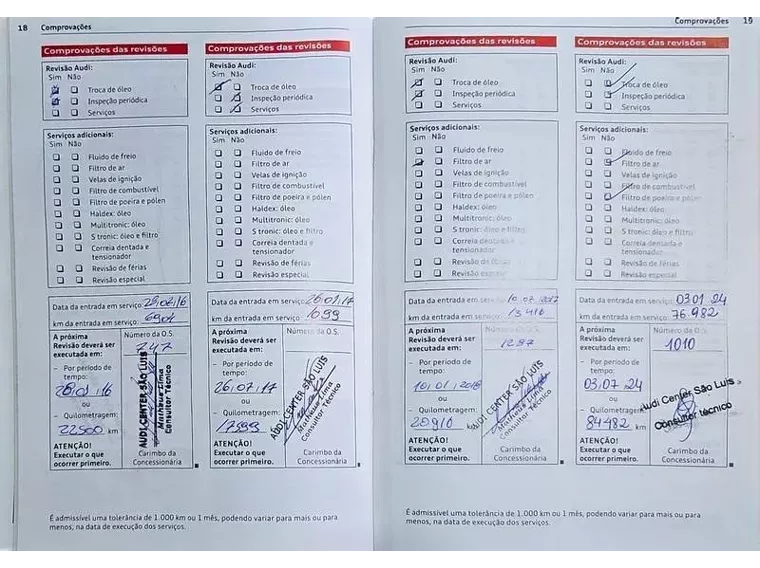 18 Comprovações
Comprovações das revisões
Revisão Audi:
Sim Não
Troca de óleo
Inspeção periódica
Serviços
Serviços adicionais:
Sim Não
Fluido de freio
Filtro de ar
Velas de ignição
Filtro de combustível
Filtro de poeira e pólen
Haldex: óleo
Multitronic: óleo
S tronic: óleo e filtro
Correia dentada e
tensionador
Revisão de férias
Revisão especial
Data da entrada em serviço:
km da entrada em serviço:
A próxima
Revisão deverá ser
executada em:
Número da O.S.
747
— Por período de
tempo:
ou
— Quilometragem:
22500 km
ATENÇÃO!
Executar o que
ocorrer primeiro.
AUDI CENTER SÃO LUIS
Matheus Lima
Consultor Técnico
Carimbo da
Concessionária
Comprovações das revisões
Revisão Audi:
Sim Não
Troca de óleo
Inspeção periódica
Serviços
Serviços adicionais:
Sim Não
Fluido de freio
Filtro de ar
Velas de ignição
Filtro de combustível
Filtro de poeira e pólen
Haldex: óleo
Multitronic: óleo
S tronic: óleo e filtro
Correia dentada e
tensionador
Revisão de férias
Revisão especial
Data da entrada em serviço: 26/01/17
km da entrada em serviço:
A próxima
Revisão deverá ser
executada em:
Número da O.S.
— Por período de
tempo:
26/07/17
ou
— Quilometragem:
ATENÇÃO!
Executar o que
ocorrer primeiro.
AUDI CENTER SÃO LUIS
Matheus Lima
Consultor Técnico
Carimbo da
Concessionária
É admissível uma tolerância de 1.000 km ou 1 mês, podendo variar para mais ou para
menos, na data de execução dos serviços.
Comprovações 19
Comprovações das revisões
Revisão Audi:
Sim Não
Troca de óleo
Inspeção periódica
Serviços
Serviços adicionais:
Sim Não
Fluido de freio
Filtro de ar
Velas de ignição
Filtro de combustível
Filtro de poeira e pólen
Haldex: óleo
Multitronic: óleo
S tronic: óleo e filtro
Correia dentada e
tensionador
Revisão de férias
Revisão especial
Data da entrada em serviço: 10/07/2017
km da entrada em serviço: 13410
A próxima
Revisão deverá ser
executada em:
Número da O.S.
1287
— Por período de
tempo:
10/01/2018
ou
— Quilometragem:
km
ATENÇÃO!
Executar o que
ocorrer primeiro.
AUDI CENTER SÃO LUIS
Matheus Lima
Consultor Técnico
Carimbo da
Concessionária
Comprovações das revisões
Revisão Audi:
Sim Não
Troca de óleo
Inspeção periódica
Serviços
Serviços adicionais:
Sim Não
Fluido de freio
Filtro de ar
Velas de ignição
Filtro de combustível
Filtro de poeira e pólen
Haldex: óleo
Multitronic: óleo
S tronic: óleo e filtro
Correia dentada e
tensionador
Revisão de férias
Revisão especial
Data da entrada em serviço: 03 01 24
km da entrada em serviço: 76.982
A próxima
Revisão deverá ser
executada em:
Número da O.S.
1010
— Por período de
tempo:
03/07/24
ou
— Quilometragem:
84482 km
ATENÇÃO!
Executar o que
ocorrer primeiro.
Audi Center São Luis
Consultor técnico
Carimbo da
Concessionária
É admissível uma tolerância de 1.000 km ou 1 mês, podendo variar para mais ou para
menos, na data de execução dos serviços.